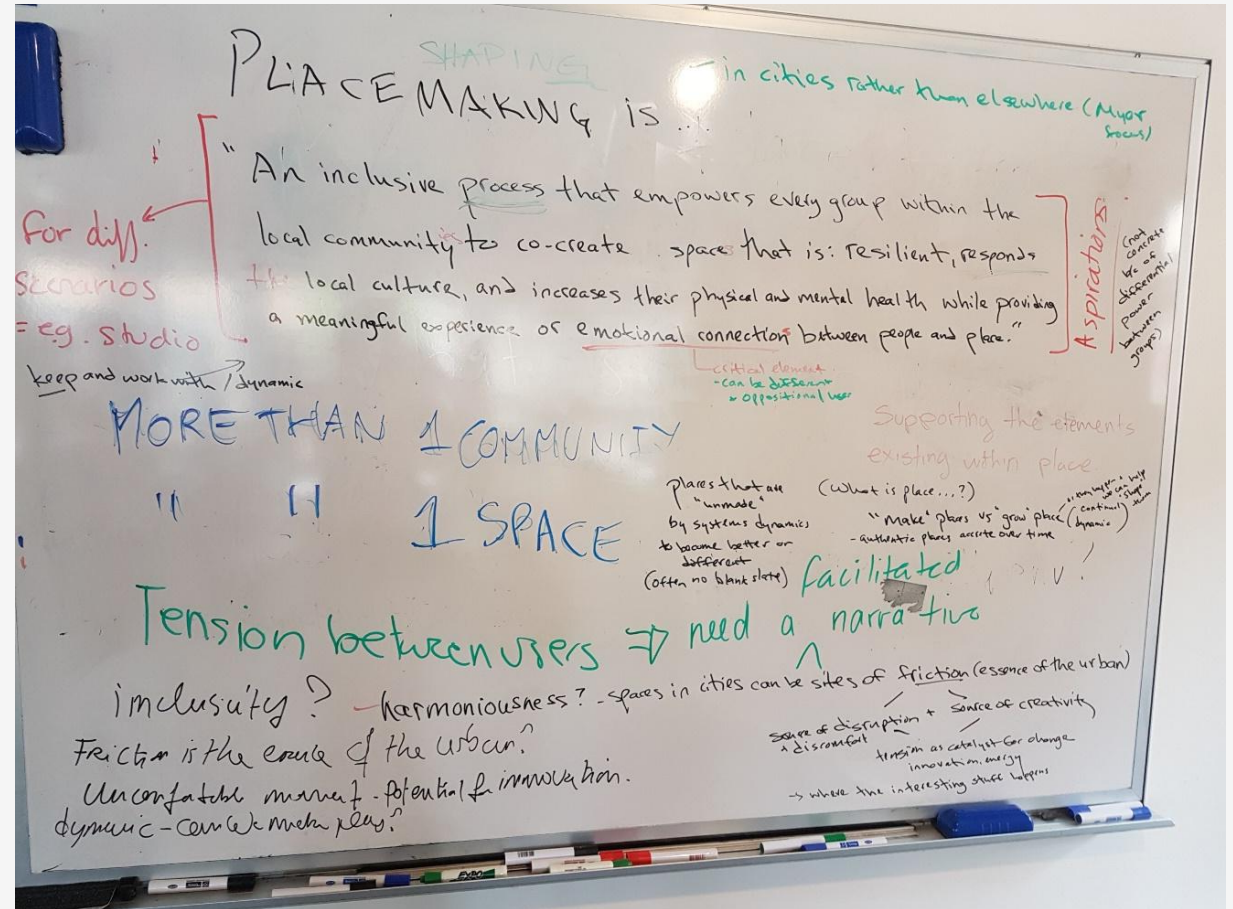 SHAPING
PLACEMAKING is...
- in cities rather than elsewhere (Myor
focus)
"An inclusive process that empowers every group within the
local community to co-create space that is: resilient, responds
local culture, and increases their physical and mental health while providing
a meaningful experience or emotional connections between people and place."
for diff.
scenarios
= eg. studio
Aspirations
(not
concrete
b/c of
differential
power
between
groups)
keep and work with / dynamic
- critical element
- can be different
oppositional user
MORE THAN 1 COMMUNITY
" " 1 SPACE
Supporting the elements
existing within place
places that are
"unmade"
by systems dynamics
to become better or
different
(often no blank slate)
(What is place...?)
"make" places vs "grow" place (continual dynamic)
we can help
shape
them
- authentic places accrete over time
facilitated
Tension between users ⇒ need a narrative
imclusivity? - harmoniousness? - spaces in cities can be sites of friction (essence of the urban)
source of disruption + source of creativity
+ discomfort
tension as catalyst for change
innovation, energy
→ where the interesting stuff happens
Friction is the of the urban?
moment - Potential for innovation.
dynamic - can we make
EXPO